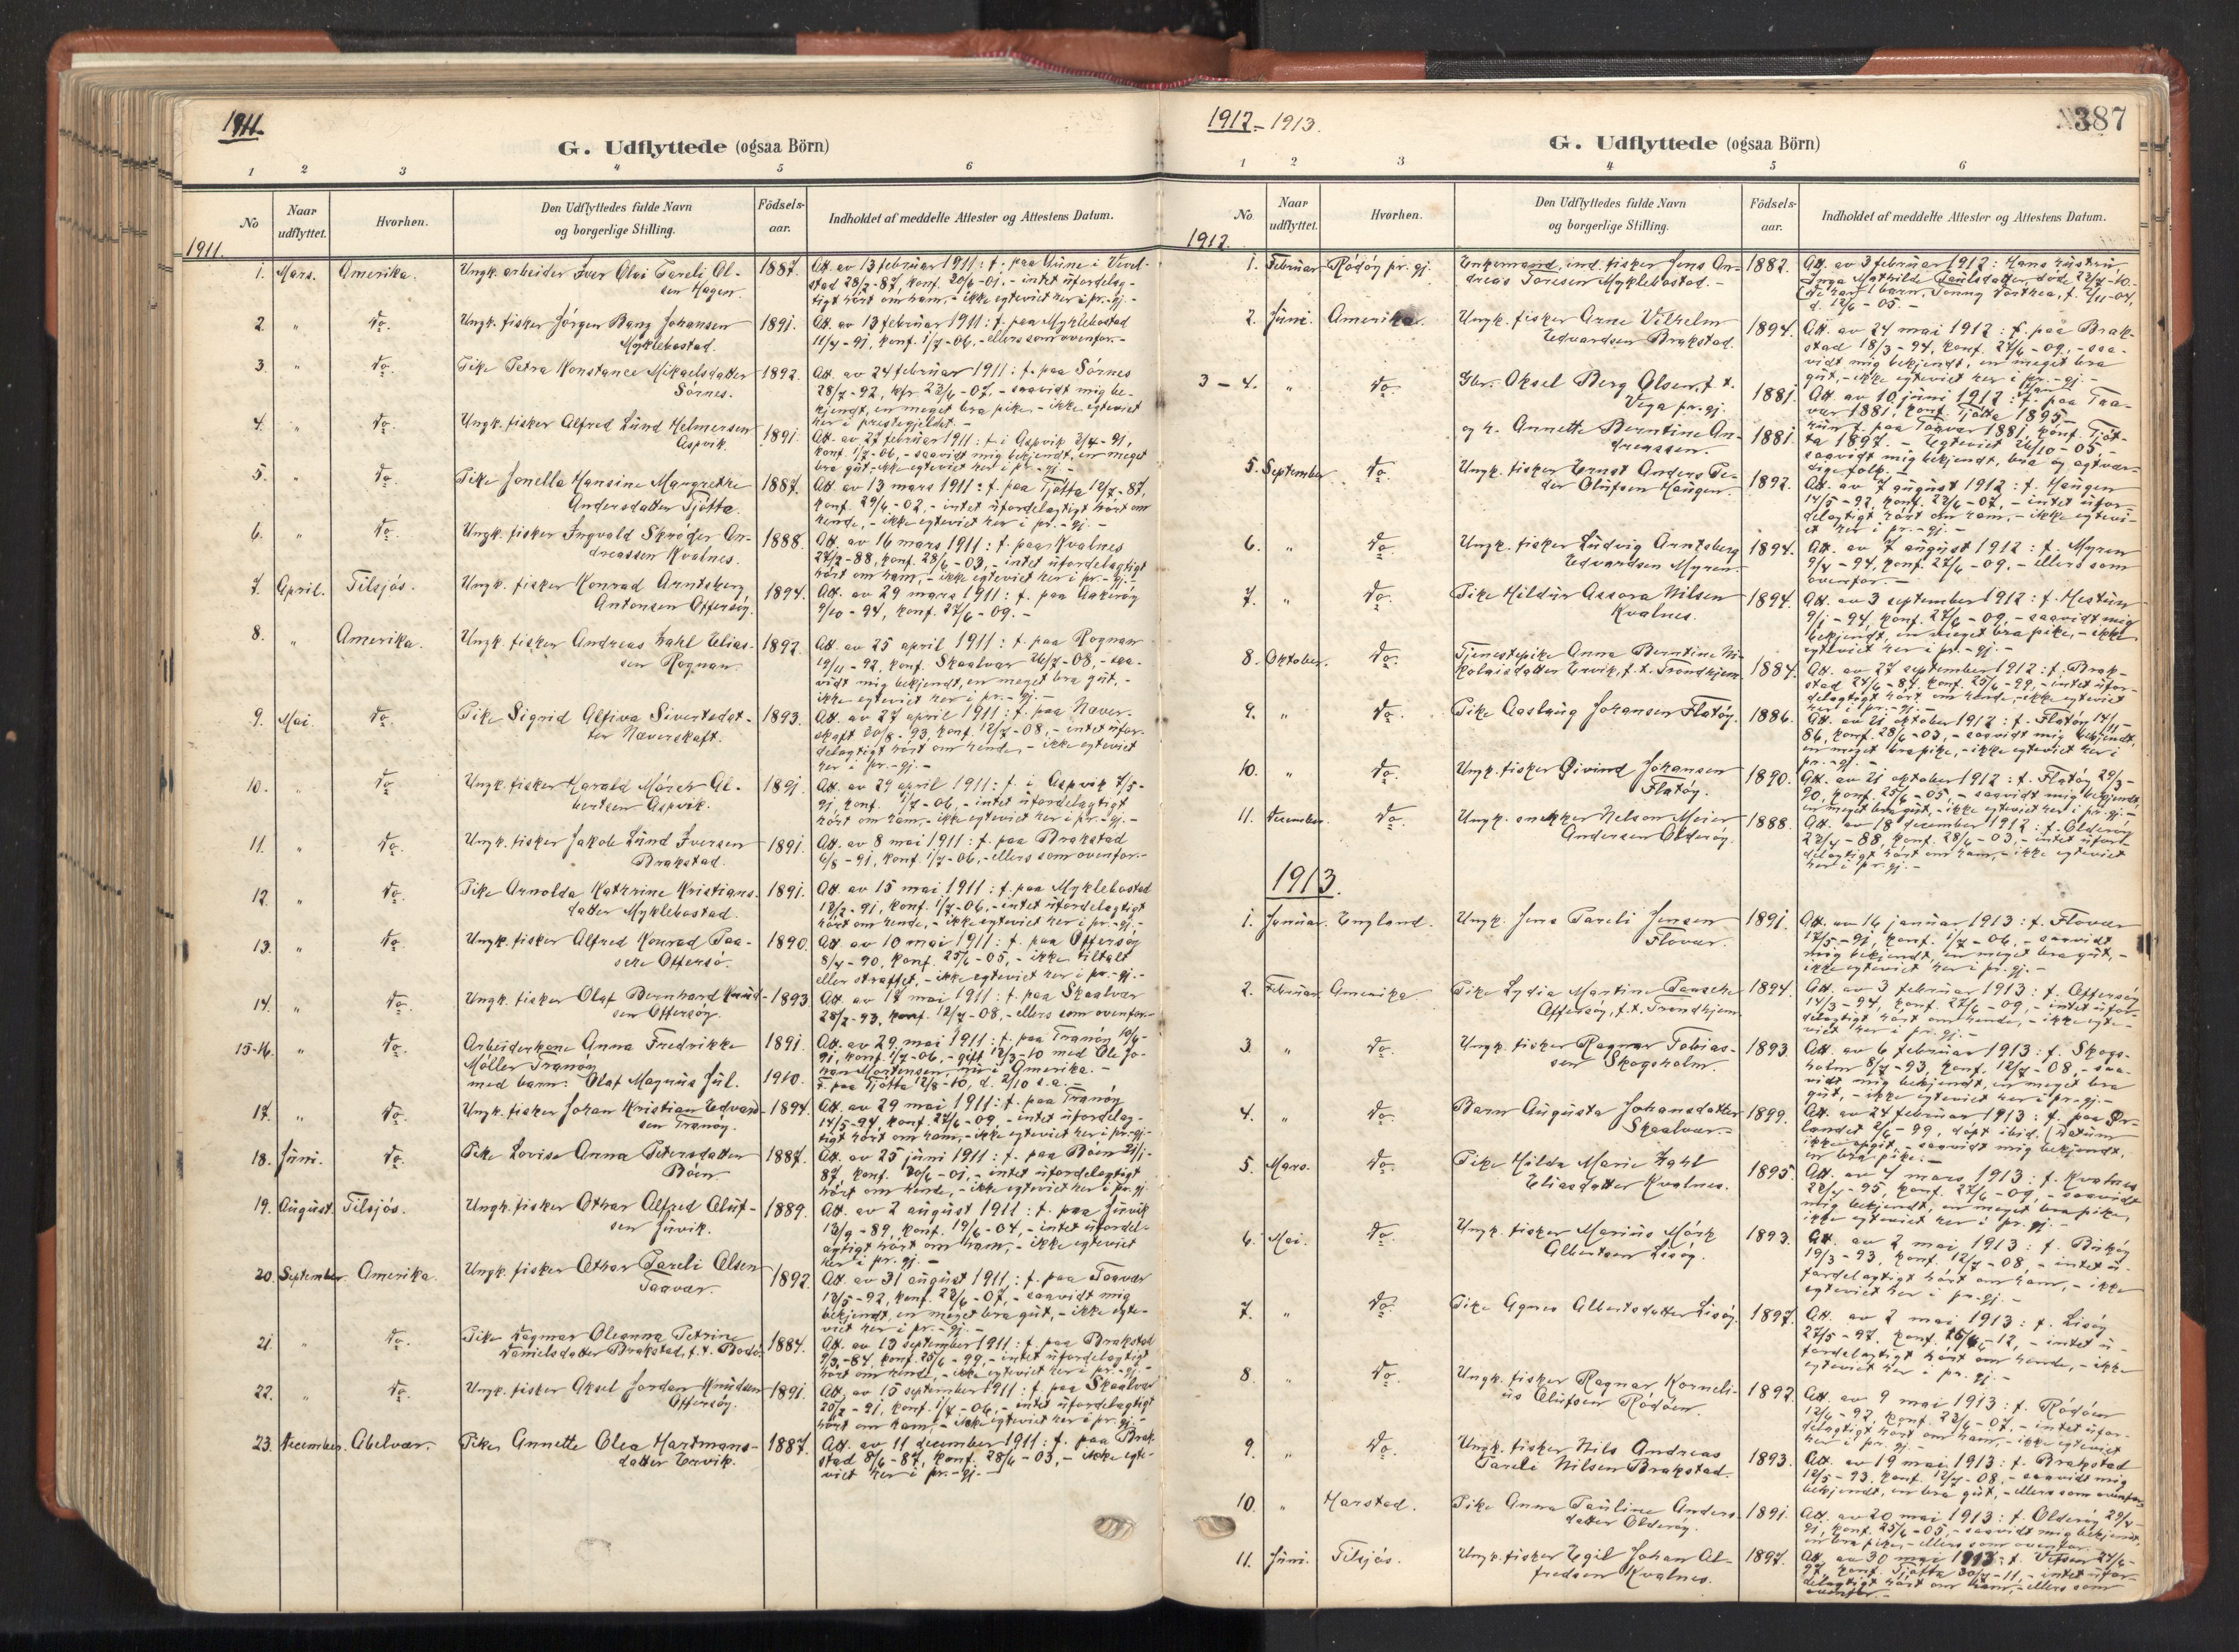 1911.
G. Udflyttede (ogsaa Börn)
1 2 3 4 5 6
No
Naar udflyttet.
Hvorhen.
Den Udflyttedes fulde Navn
og borgerlige Stilling.
Födsels-
aar.
Indholdet af meddelte Attester og Attestens Datum.
1911.
1. Mars. Amerika. Ungk. arbeider Iver Olai Pareli Ol-
sen Hagen. 1887.
Att. av 13 februar 1911: f. paa
konf. 30/6-01, - intet ufordelag-
tigt hört om ham, - ikke egteviet her i pr.-gj. -
2. " Do. Ungk. fisker Jörgen Bang Johansen
Myklebostad. 1891.
Att. av 13 februar 1911: f. paa Myklebostad
11/4-91, konf. 1/7-06, - ellers som ovenfor. -
3. " Do. Pike Petra Konstance Mikaelsdatter
Sörnes. 1892.
Att. av 24 februar 1911: f. paa Sörnes
28/7-92, kfr 23/6-07, - saavidt mig be-
kjendt, en meget bra pike, - ikke egteviet
her i prestegjeldet. -
4. " Do. Ungk. fisker Alfred Lund Helmersen
Aspvik. 1891.
Att. av 27 februar 1911: f. i Aspvik 3/4-91,
konf. 1/7-06, - saavidt mig bekjendt, en meget
bra gut, - ikke egteviet her i pr.-gj. -
5. " Do. Pike Jonella Hansine Margrethe
Andersdatter Tjötta. 1887.
Att. av 13 mars 1911: f. paa Tjötta 12/7-87,
konf. 29/6-02, - intet ufordelagtigt hört om
hende, - ikke egteviet her i pr.-gj. -
6. " Do. Ungk. fisker Ingvald Skröder An-
dreassen Kvalnes. 1888.
Att. av 16 mars 1911: f. paa Kvalnes
konf. 28/6-03, - intet ufordelagtigt
hört om ham, - ikke egteviet her i pr.-gj. -
7. April. Tilsjös. Ungk. fisker Konrad Arntsberg
Antonsen Offersöy. 1894.
Att. av 29 mars 1911: f. paa
9/10-94, konf. 27/6-09. -
8. " Amerika. Ungk. fisker Andreas Zahl Elias-
sen Rognan. 1892.
Att. av 25 april 1911: f. paa Rognan
19/11-92, konf. Skaalvær 26/7-08, - saa-
vidt mig bekjendt, en meget bra gut, -
ikke egteviet her i pr.-gj. -
9. Mai. Do. Pike Sigrid Alfiva Sivertsdat-
ter Næverskaft. 1893.
Att. av 27 april 1911: f. paa Næver-
skaft konf. 12/7-08, - intet ufor-
delagtigt hört om hende, - ikke egteviet
her i pr.-gj. -
10. " Do. Ungk. fisker Harald Mörch Al-
bertsen Aspvik. 1891.
Att. av 29 april 1911: f. i Aspvik 7/5-
91, konf. 1/7-06, - intet ufordelagtigt
hört om ham, - ikke egteviet her i pr.-gj. -
11. " Do. Ungk. fisker Jakob Lund Iversen
Brakstad. 1891.
Att. av 8 mai 1911: f. paa Brakstad
6/8-91, konf. 1/7-06, - ellers som ovenfor. -
12. " Do. Pike Arnolda Kathrine Kristians-
datter Myklebostad. 1891.
Att. av 15 mai 1911: f. paa Myklebostad
12/2-91, konf. 1/7-06, - intet ufordelagtigt
hört om hende, - ikke egteviet her i pr.-gj. -
13. " Do. Ungk. fisker Alfred Konrad Paa-
sche Offersö. 1890.
Att. av 10 mai 1911: f. paa Offersöy
8/4-90, konf. 25/6-05, - ikke tiltalt
eller straffet, - ikke egteviet her i pr.-gj. -
14. " Do. Ungk. fisker Olaf Bernhard Knud-
sen Offersöy. 1893.
Att. av 17 mai 1911: f. paa Skaalvær
28/2-93, konf. 12/7-08, - ellers som ovenfor. -
15-16. " Do. Arbeiderkone Anna Fredrikke
Möller Tranöy 1891.
med barn: Olaf Magnus Jul. 1910.
Att. av 29 mai 1911: f. paa Tranöy 10/6-
91, konf. 1/7-06, - gift 12/3-10 med Ole Jo-
han Mortensen, nu i Amerika. -
F. paa Tjötta 12/8-10, d. 2/10 s.a. -
17. " Do. Ungk. fisker Johan Kristian Edvard-
sen Tranöy. 1894.
Att. av 29 mai 1911: f. paa Tranöy
14/5-94, konf. 27/6-09, - intet ufordelag-
tigt hört om ham, - ikke egteviet her i pr.-gj. -
18. Juni. Do. Pike Lovise Anna Petersdatter
Böen. 1887.
Att. av 25 juni 1911: f. paa Böen 21/1-
87, konf. 30/6-01, - intet ufordelagtigt
hört om hende, - ikke egteviet her i pr.-gj.
19. August. Tilsjös. Ungk. fisker Othar Alfred Oluf-
sen Jurvik. 1889.
Att. av 2 august 1911: f. paa Jurvik
13/9-89, konf. 19/6-04, - intet ufordel-
agtigt hört om ham, - ikke egteviet
her i pr.-gj. -
20. September. Amerika. Ungk. fisker Othar Pareli Olsen
Taavær. 1892.
Att. av 31 august 1911: f. paa Taavær
12/5-92, konf. 23/6-07, - saavidt mig
bekjendt, en meget bra gut, - ikke egte-
viet her i pr.-gj. -
21. " Do. Pike Dagmar Oleanna Petrine
Danielsdatter Brakstad, f. t. Bodö. 1884.
Att. av 13 september 1911: f. paa Brakstad
9/3-84, konf. 25/6-99, - intet ufordelagtigt
hört om hende, - ikke egteviet her i pr.-gj. -
22. " Do. Ungk. fisker Aksel Jordan Knudsen
Offersöy. 1891.
Att. av 15 september 1911: f. paa Skaalvær
20/2-91, konf. 1/7-06, - intet ufordelagtigt
hört om ham, - ikke egteviet her i pr.-gj. -
23. December. Abelvær. Pike Annette Olea Hartmans-
datter Ervik. 1887.
Att. av 11 december 1911: f. paa Brak-
stad 8/6-87, konf. 28/6-03, - ikke egte-
viet her i pr.-gj. -
1912-1913.
387
G. Udflyttede (ogsaa Börn)
1 2 3 4 5 6
No
Naar udflyttet.
Hvorhen.
Den Udflyttedes fulde Navn
og borgerlige Stilling.
Födsels-
aar.
Indholdet af meddelte Attester og Attestens Datum.
1912.
1. Februar Rödöy pr. gj. Enkemand, ind. fisker Jens An-
dreas Toresen Myklebostad. - 1882.
Att. av 3 februar 1912: Hans hustru
Inga Mathilde Paulsdatter, död 23/7-10. -
De har 1 barn, Jenny Dorthea, f. 2/11-04,
d. 12/6-05. -
2. Juni. Amerika. Ungk. fisker Arne Vilhelm
Edvardsen Brakstad. 1894.
Att. av 24 mai 1912: f. paa Brak-
stad 18/3-94, konf. 27/6-09, - saa-
vidt mig bekjendt, en meget bra
gut, - ikke egteviet her i pr.-gj. -
3-4. " Do. Gbr. Aksel Berg Olsen, f. t.
Vega pr.gj. 1881.
og h. Annette Berntine An-
dreassen. 1881.
Att. av 10 juni 1912: Han f. paa Taa-
vær 1881, konf. Tjötta 1895 -
hun f. paa Taavær 1881, konf. Tjöt-
ta 1897. - Egteviet 26/10-05, -
saavidt mig bekjendt, bra og agtvær-
dige folk. -
5. September Do. Ungk. fisker Ernst Anders Pe-
der Olufsen Haugen. 1892.
Att. av 7 august 1912: f. Haugen
14/5-92, konf. 23/6-07, - intet ufor-
delagtigt hört om ham, - ikke egtevi-
et her i pr.-gj. -
6. " Do. Ungk. fisker Ludvig Arntsberg
Edvardsen Myren. 1894.
Att. av 7 august 1912: f. Myren
9/4-94, konf. 27/6-09, - ellers som
ovenfor. -
7. " Do. Pike Hildur Assora Nilsen
Kvalnes. 1894.
Att. av 3 september 1912: f. Hestun
9/1-94, konf. 27/6-09, - saavidt mig
bekjendt, en meget bra pike, - ikke
egteviet her i pr.-gj. -
8. Oktober. Do. Tjenestepike Anna Berntine Ni-
kolaisdatter Ervik, f. t. Trondhjem. 1884.
Att. av 27 september 1912: f. Brak-
stad 24/6-84, konf. 25/6-99, - intet ufor-
delagtigt hört om hende, - ikke egteviet
her i pr.-gj. -
9. " Do. Pike Aaslaug Johansen Flatöy. 1886.
Att. av 21 oktober 1912: f. Flatöy 14/11-
86, konf. 28/6-03, - saavidt mig bekjendt,
en meget bra pike, - ikke egteviet her i
pr.-gj. -
10. " Do. Ungk. fisker Øivind Johansen
Flatöy. 1890.
Att. av 21 oktober 1912: f. Flatöy 29/3-
90, konf. 25/6-05 - saavidt mig bekjendt,
en meget bra gut, - ikke egteviet her i pr.gj. -
11. December. Do. Ungk. snekker Nelson Meier
Andersen Olderöy. 1888.
Att. av 18 december 1912: f. Olderöy
22/4-88, konf. 28/6-03, - intet ufor-
delagtigt hört om ham, - ikke egteviet
her i pr.gj. -
1913.
1. Januar. England. Ungk. Jens Pareli Jensen
Flovær. 1891.
Att. av 16 januar 1913: f. Flovær
17/5-91, konf. 1/7-06, - saavidt
mig bekjendt, en meget bra gut, -
ikke egteviet her i pr.-gj. -
2. Februar. Amerika. Pike Lydia Martine Paasche
Offersöy, f. t. Trondhjem. 1894.
Att. av 3 februar 1913: f. Offersöy
14/3-94, konf. 27/6-09, - intet ufor-
delagtigt hört om hende, - ikke egte-
viet her i pr.gj. -
3. " Do. Ungk. fisker Ragnar Tobias-
sen Skogsholm. 1893.
Att. av 6 februar 1913: f. Skogs-
holm 8/7-93, konf. 12/7-08, - saa-
vidt mig bekjendt, en meget bra
gut, - ikke egteviet her i pr.gj. -
4. " Do. Barn Augusta Johansdatter
Skaalvær. - 1899.
Att. av 24 februar 1913: f. paa Ør-
landet 2/6-99, döpt ibid. (Datum
ikke opgit, - saavidt mig bekjendt,
en bra pike. -
5. Mars. Do. Pike Hilda Marie Zahl
Eliasdatter Kvalnes. 1895.
Att. av 7 mars 1913: f. Kvalnes
22/4-95, konf. 27/6-09, - saavidt
mig bekjendt, en meget bra pike,
ikke egteviet her i pr.gj. -
6. Mai. Do. Ungk. fisker Marius Mörk
Albertsen Lisöy. 1893.
Att. av 2 mai 1913: f. Buköy
19/3-93, konf. 12/7-08, - intet u-
fordelagtigt hört om ham, - ikke
egteviet her i pr.gj. -
7. " Do. Pike Agnes Albertsdatter Lisöy. 1897.
Att. av 2 mai 1913: f. Lisöy
27/5-97, konf. -12, - intet u-
fordelagtigt hört om hende, - ikke
egteviet her i pr. gj. -
8. " Do. Ungk. fisker Ragnar Korneli-
us Olufsen Rödöen. 1892.
Att. av 9 mai 1913: f. Rödöen
12/6-92, konf. 23/6-07, - intet ufor-
delagtigt hört om ham, - ikke egteviet
her i pr. gj. -
9. " Do. Ungk. fisker Nils Andreas
Pareli Nilsen Brakstad. 1893.
Att. av 19 mai 1913: f. Brakstad
12/5-93, konf. 12/7-08, - saavidt mig
bekjendt, en bra gut, - ellers som ovenfor.
10. " Harstad. Pike Anna Pauline Anders-
datter Olderöy. 1891.
Att. av 20 mai 1913: f. Olderöy 29/4-
91, konf. 25/6-05, - saavidt mig bekjendt,
en bra pike, - ellers som ovenfor. -
11. Juni. Tilsjös. Ungk. fisker Egil Johan Al-
fredsen Kvalnes. 1897.
Att. av 30 mai 1913: f. 27/6-
97, konf. Tjötta 30/7-11, - intet ufor-
delagtigt hört om ham, - ellers som
ovenfor. -